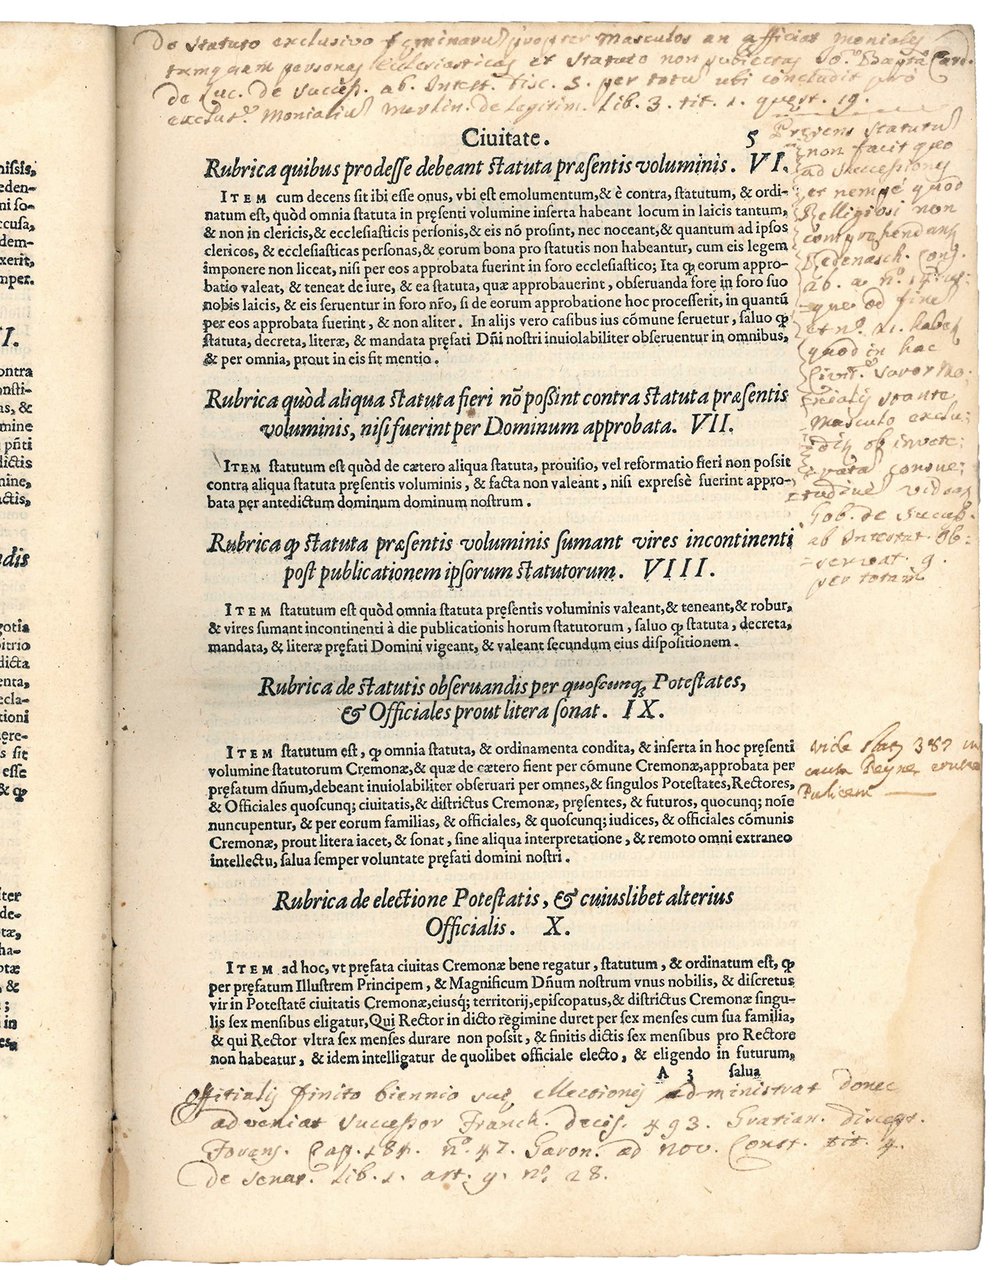 De statuto exclusivo feminarum propter Masculos an afficiat moniales
tamquam personas Ecclesiasticas et statuto non subiectas Jo. Bapta Card.
de Luc. de Success. ab. Intest. disc. 5. per totum ubi concludit pro
Monialium Merlin. de legitim. Lib. 3. tit. 1. quest. 19.
Ciuitate. 5
Rubrica quibus prodesse debeant statuta præsentis voluminis. VI.
ITEM cum decens sit ibi esse onus, vbi est emolumentum, & è contra, statutum, & ordi-
natum est, quòd omnia statuta in pręsenti volumine inserta habeant locum in laicis tantum,
& non in clericis, & ecclesiasticis personis, & eis nó prosint, nec noceant, & quantum ad ipsos
clericos, & ecclesiasticas personas, & eorum bona pro statutis non habeantur, cum eis legem
imponere non liceat, nisi per eos approbata fuerint in foro ecclesiastico; Ita ꝙ eorum appro-
batio valeat, & teneat de iure, & ea statuta, quæ approbauerint, obseruanda fore in foro suo
nobis laicis, & eis seruentur in foro nr̃o, si de eorum approbatione hoc processerit, in quantũ
ꝑer eos approbata fuerint, & non aliter. In alijs vero casibus ius cómune seruetur, saluo ꝙ
statuta, decreta, literæ, & mandata pręfati Dñi nostri inuiolabiliter obseruentur in omnibus,
& per omnia, prout in eis fit mentio.
Rubrica quòd aliqua statuta fieri nõ possint contra statuta præsentis
voluminis, nisi fuerint per Dominum approbata. VII.
ITEM statutum est quòd de cætero aliqua statuta, prouisio, vel reformatio fieri non possit
contra aliqua statuta pręsentis voluminis, & facta non valeant, nisi expressè fuerint appro-
bata per antedictum dominum dominum nostrum.
Rubrica ꝙ statuta præsentis voluminis sumant vires incontinenti
post publicationem ipsorum statutorum. VIII.
ITEM statutum est quòd omnia statuta pręsentis voluminis valeant, & teneant, & robur,
& vires sumant incontinenti à die publicationis horum statutorum, saluo ꝙ statuta, decreta,
mandata, & literæ pręfati Domini vigeant, & valeant secundum eius dispositionem.
Rubrica de statutis obseruandis per quoscunq; Potestates,
& Officiales prout litera sonat. IX.
ITEM statutum est, ꝙ omnia statuta, & ordinamenta condita, & inserta in hoc pręsenti
volumine statutorum Cremonæ, & quæ de cætero fient per cómune Cremonæ, approbata per
pręfatum dñum, debeant inuiolabiliter obseruari per omnes, & singulos Potestates, Rectores,
& Officiales quoscunq; ciuitatis, & districtus Cremonæ, pręsentes, & futuros, quocunq; noĩe
nuncupentur, & per eorum familias, & officiales, & quoscunq; iudices, & officiales cómunis
Cremonæ, prout litera iacet, & sonat, sine aliqua interpretatione, & remoto omni extraneo
intellectu, salua semper voluntate pręfati domini nostri.
Rubrica de electione Potestatis, & cuiuslibet alterius
Officialis. X.
ITEM ad hoc, vt pręfata ciuitas Cremonæ bene regatur, statutum, & ordinatum est, ꝙ
per pręfatum Illustrem Principem, & Magnificum Dñum nostrum vnus nobilis, & discretus
vir in Potestatẽ ciuitatis Cremonæ, eiusq; territorij, episcopatus, & districtus Cremonæ singu-
lis sex mensibus eligatur, Qui Rector in dicto regimine duret per sex menses cum sua familia,
& qui Rector vltra sex menses durare non possit, & finitis dictis sex mensibus pro Rectore
non habeatur, & idem intelligatur de quolibet officiale electo, & eligendo in futurum,
A 3 salua
Presens statutum
non facit quo
ad successionem
et nempe quod
Religiosi non
comprehendant
Redenasch. Cons.
ab. a n.
que ad fine
et n. 21. habet
quod in hac
Civit. favor Mo-
nialis stante
Masculo exclu-
ditur ob invete-
rata consue-
tudine videas
Gob. de success.
ab Intestat. Ob-
servat. 9.
per totam
vide stat 387 in
causa
Pulicem
Offitialis finito biennio suę ellectionis administrat donec
adveniat successor Franch. decis. 493. Gratian. discept.
Forens. Cap. 184. n. 47. Garon. ad nov. Const. tit. 4.
de senat. Lib. 1. art. 9. n. 28.
nissis,
eden-
ni so-
ccusa,
dem-
xerit,
mper.
I.
contra
onsti-
as, &
mine
pñti
dictis
mine,
actis,
ndis
gotia
bitrio
dicta
enta,
ecla-
tioni
ere-
s sit
esse
& ꝙ
iter
de-
otæ,
ha-
otæ
, &
;
in
es,